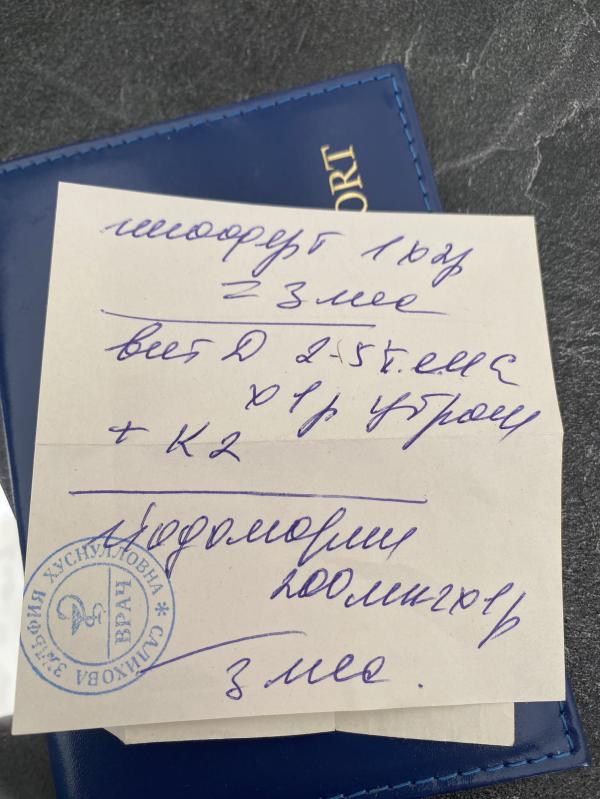 ORT
иноферт 1 х 2р
= 3 мес
вит Д 2-5 т.ед
х 1р утром
+ К2
Йодомарин
200 мкг х 1р
3 мес.
САЛИХОВА ЗУЛЬФИЯ ХУСНУЛЛОВНА *
ВРАЧ